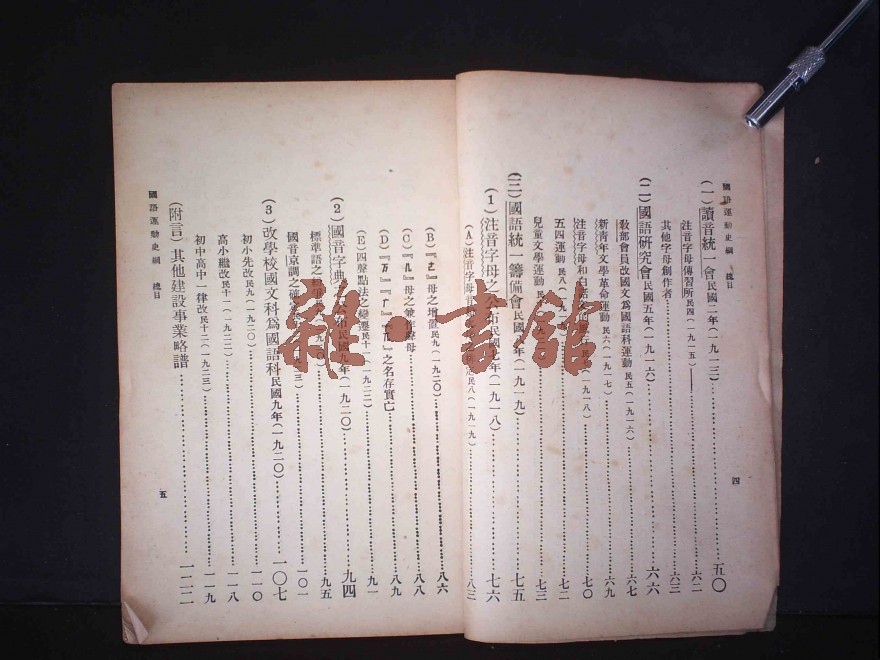 國語運動史綱 總目
(一)讀音統一會民國二年(一九一三)……五〇
注音字母傳習所民四(一九一五)……六二
其他字母創作者……六三
(二)國語研究會民國五年(一九一六)……六六
敎部會員改國文爲國語科運動民五(一九一六)……六七
新靑年文學革命運動民六(一九一七)……六九
注音字母和白話文……(一九一八)……七〇
五四運動民八(一九一九)……七二
兒童文學運動民……七三
(三)國語統一籌備會民國……年(一九一九)……七五
(1)注音字母之公布民國七年(一九一八)……七六
(A)注音字母音……民八(一九一九)……八三
四
(B)『ㄜ』母之增置民九(一九二〇)……八六
(C)『ㄦ』母之兼作聲母……八八
(D)『万』『广』『兀』之名存實亡……八九
(E)四聲點法之變遷民十一(一九二二)……九一
(2)國音字典之公布民國九年(一九二〇)……九四
標準語之……九五
國音京調之確……一〇一
(3)改學校國文科爲國語科民國九年(一九二〇)……一〇七
初小先改民九(一九二〇)……一一〇
高小繼改民十一(一九二二)……一一八
初中高中一律改民十二(一九二三)……一一九
(附言)其他建設事業略譜……一二二
國語運動史綱 總目
五
雜·書館